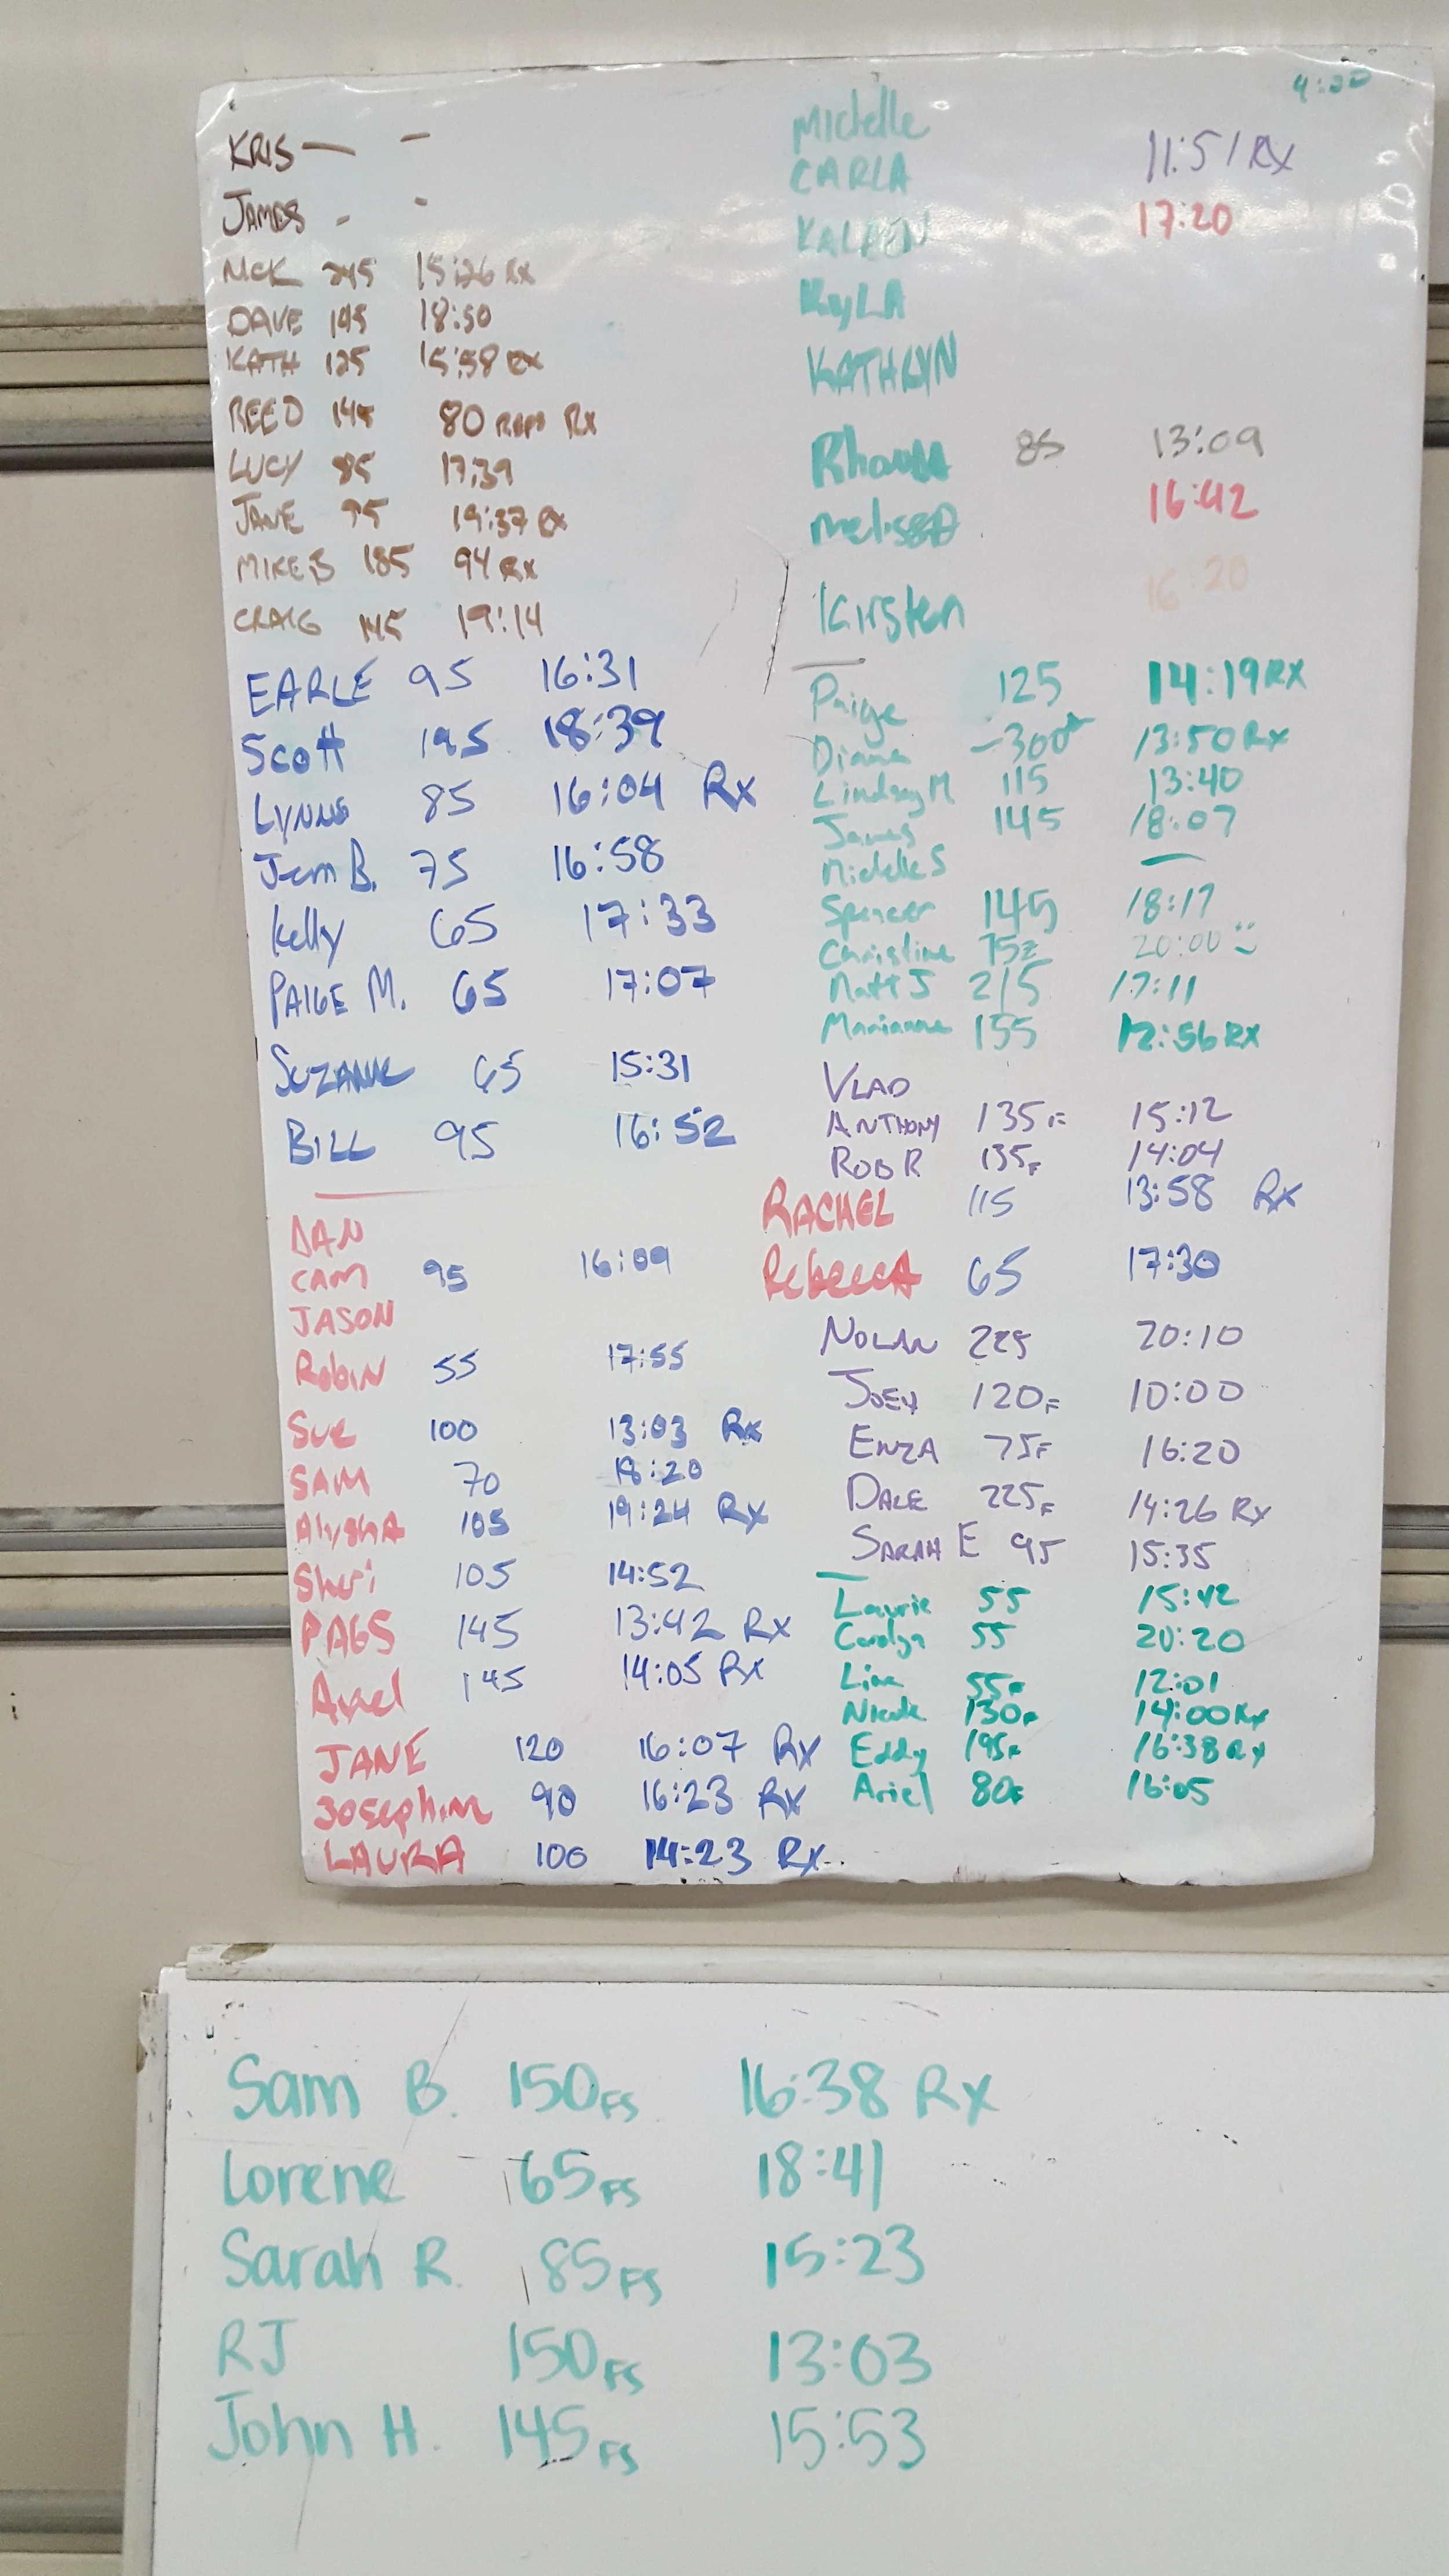 KRIS — -
JAMES - -
MCK 245 15:26 Rx
DAVE 145 18:50
KATH 125 15:58 Rx
REED 145 80 REPS Rx
LUCY 85 17:39
JANE 95 19:37 Rx
MIKE B 185 94 Rx
CRAIG 145 19:14
EARLE 95 16:31
Scott 195 18:39
LYNNE 85 16:04 Rx
Jem B. 75 16:58
Kelly 65 17:33
PAIGE M. 65 17:07
SUZANNE 65 15:31
BILL 95 16:52
DAN
CAM 95 16:09
JASON
RobIN 55 17:55
Sue 100 13:03 Rx
SAM 70 18:20
AlyshA 105 19:24 Rx
Sheri 105 14:52
PAGS 145 13:42 Rx
145 14:05 Rx
JANE 120 16:07 Rx
Josephine 90 16:23 Rx
LAURA 100 14:23 Rx
4:00
Michelle
CARLA 11:51 RX
17:20
KyLA
KATHLYN
Rhonda 85 13:09
Melissa 16:42
Kirsten 16:20
Paige 125 14:19 RX
Diana 13:50 Rx
Lindsay M 115 13:40
James 145 18:07
Michelle S —
Spencer 145 18:17
Christine 75 20:00
Matt J 215 17:11
Marianne 155 12:56 RX
VLAD
ANTHONY 135F 15:12
ROB R 135F 14:04
RACHEL 115 13:58 Rx
RebeccA 65 17:30
NOLAN 225 20:10
JOEY 120F 10:00
ENZA 75F 16:20
DALE 225F 14:26 Rx
SARAH E 95 15:35
Laurie 55 15:42
Carolyn 55 20:20
Lina 55F 12:01
Nicole 130F 14:00 Rx
Eddy 195F 16:38 Rx
Ariel 80F 16:05
Sam B. 150FS 16:38 Rx
Lorene 65FS 18:41
Sarah R. 85FS 15:23
RJ 150FS 13:03
John H. 145FS 15:53